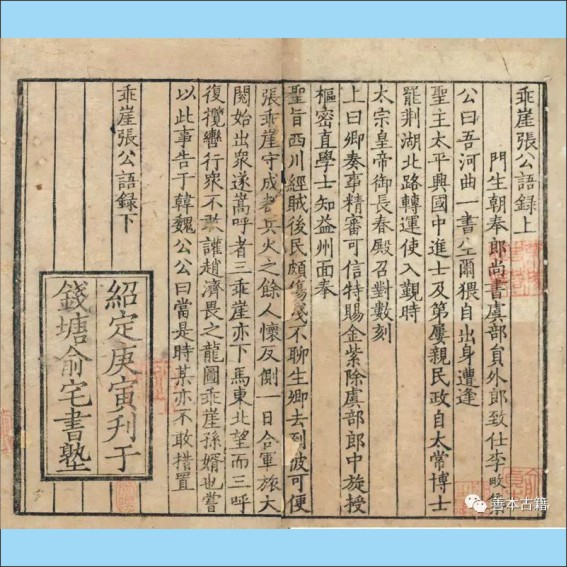 乖崖張公語録上
門生朝奉郎尚書虞部員外郎致仕李畋集
公曰吾河曲一書生爾猥自出身遭逢
聖主太平興國中進士及第屢親民政自太常博士
罷荆湖北路轉運使入觀時
太宗皇帝御長春殿召對數刻
上曰卿奏事精審可信特賜金紫除虞部郎中旋授
樞密直學士知益州面奉
聖旨西川經賊後民頗傷殘不聊生卿去到彼可便
張乖崖守成都兵火之餘人懷反側一日合軍旅大
閲始出衆遂嵩呼者三乖崖亦下馬東北望而三呼
復攬轡行衆不敢讙趙濟畏之龍圖乖崖孫婿也嘗
以此事告于韓魏公公曰當是時某亦不敢措置
乖崖張公語録下
紹定庚寅刋于
錢塘俞宅書塾
善本古籍